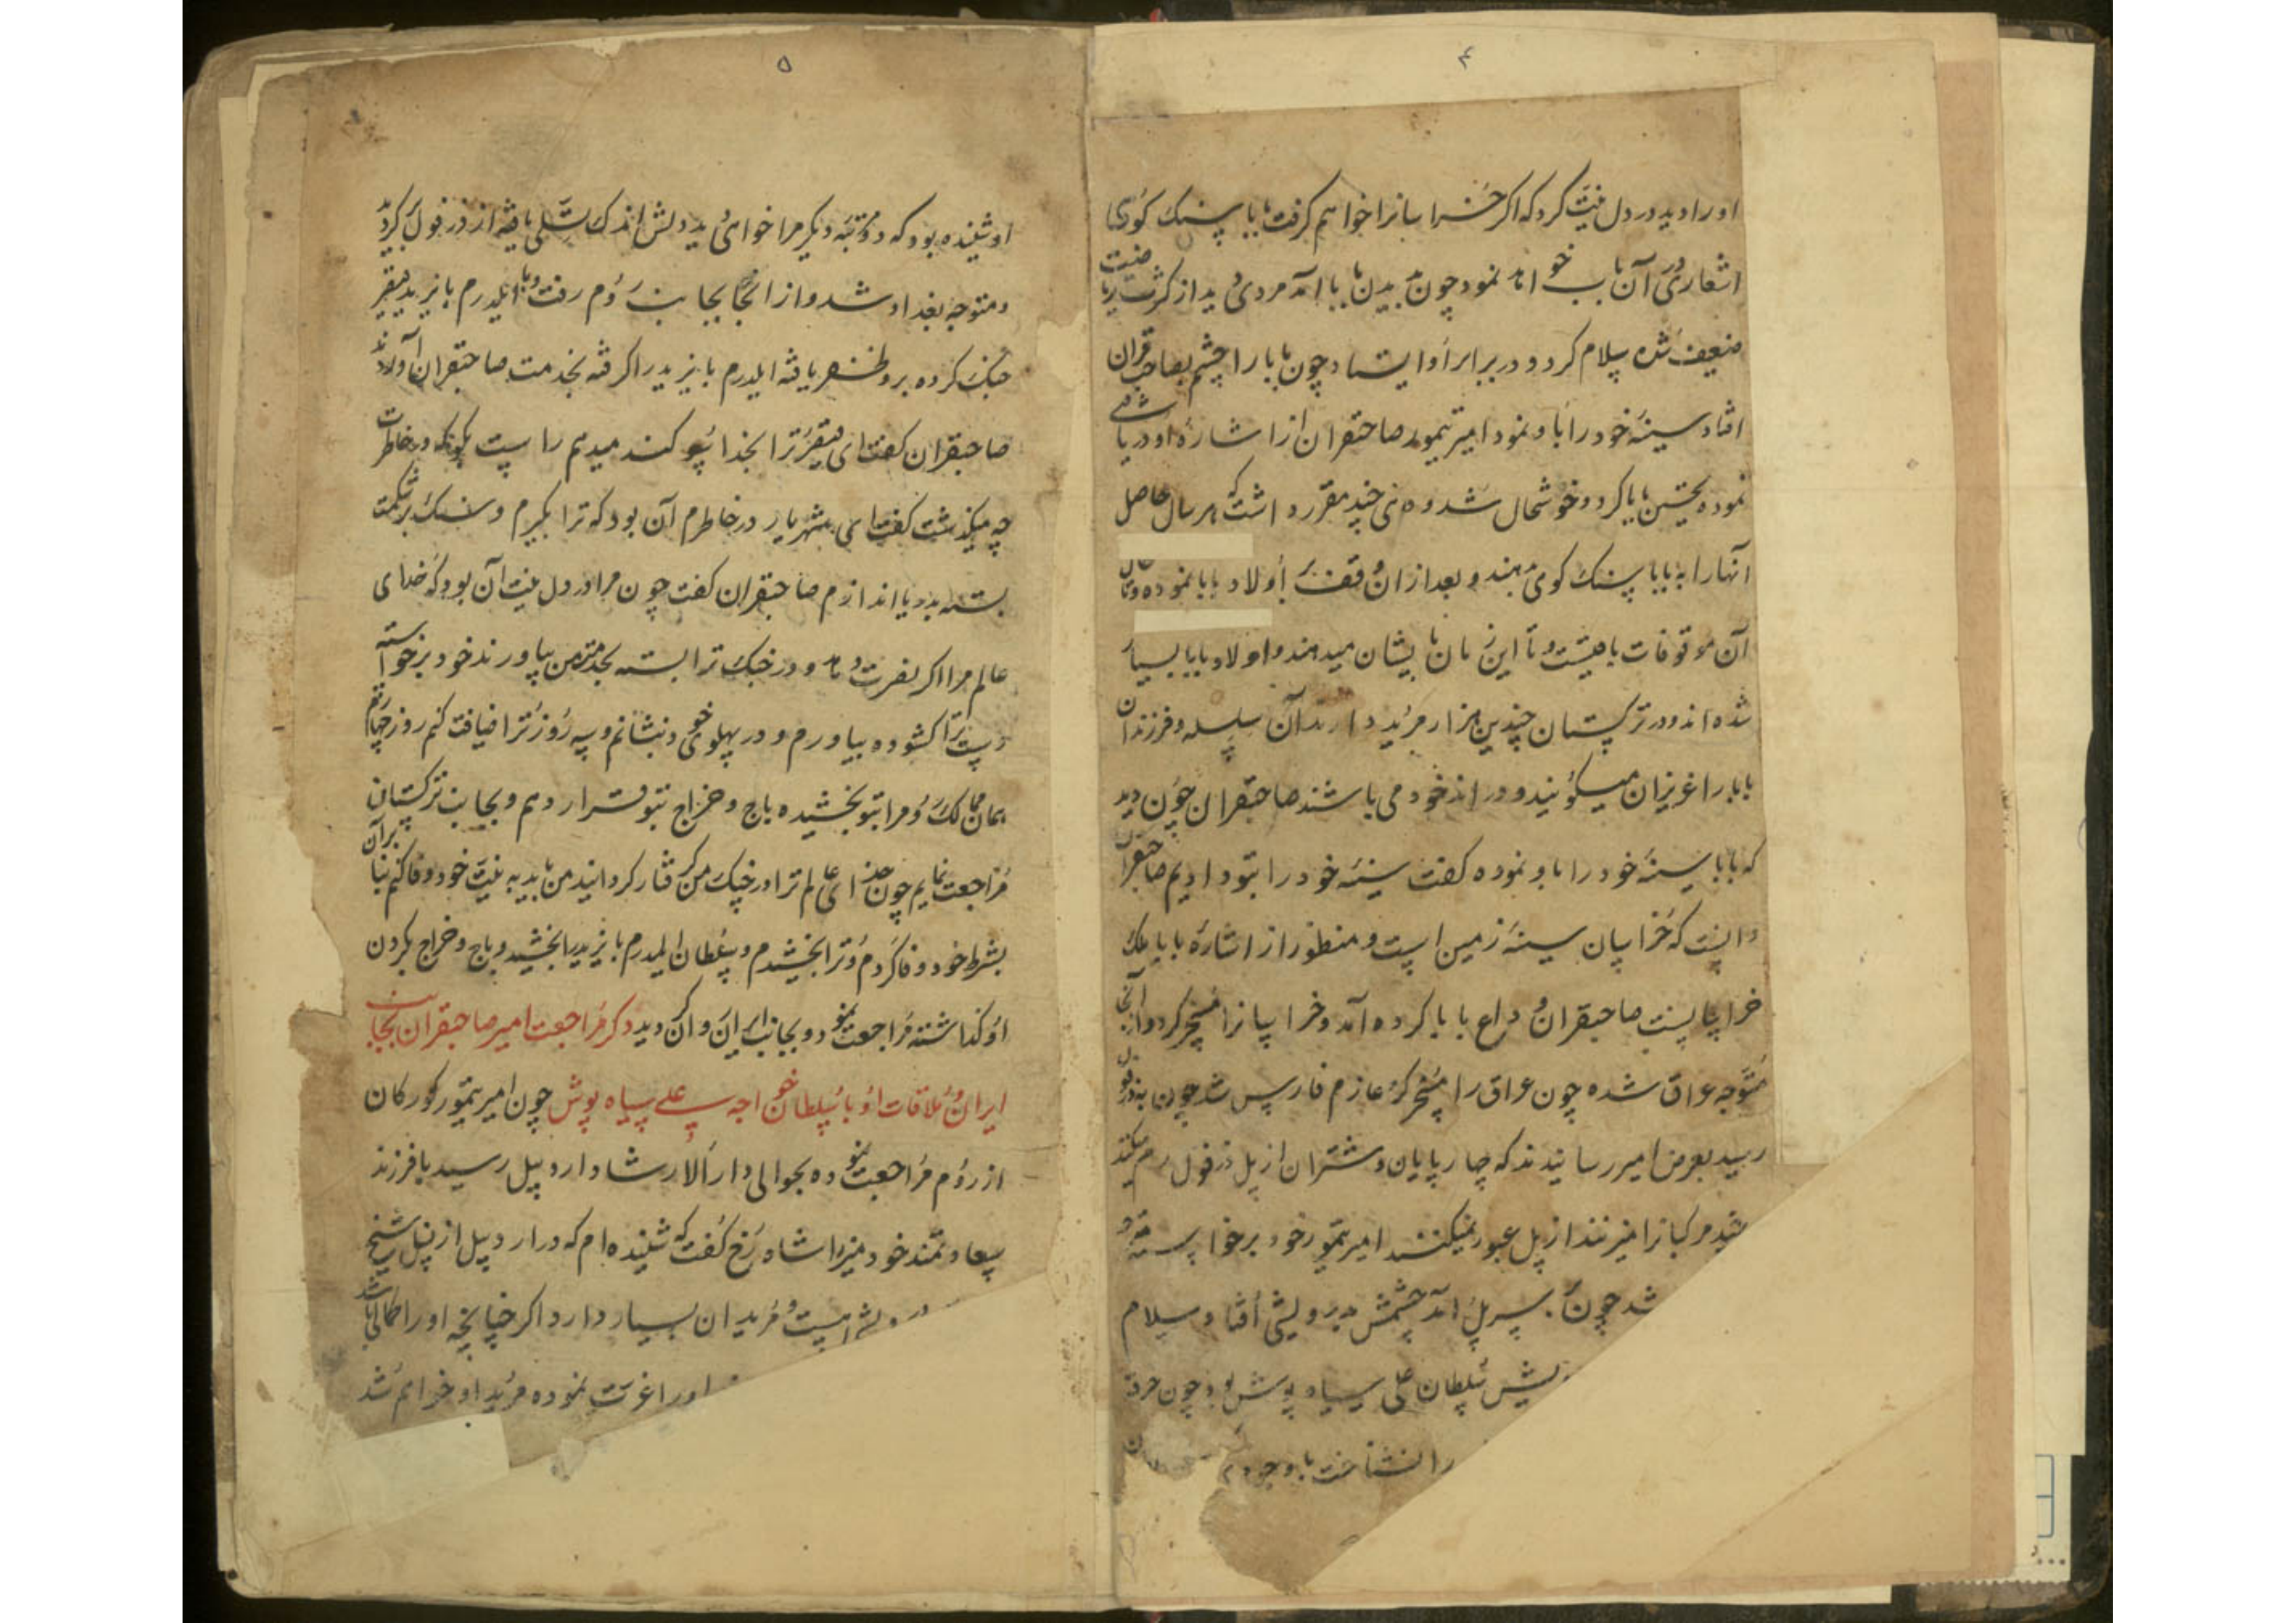 ۴
او را دید در دل نیت کرد که اکر خراسانرا خواهم کرفت بابا سنک کوی
اشعاری در آن باب خواند نمود چون بدیدن بابا آمد مردی دید از کثرت ریاضت
ضعیف شده سلام کرد و در برابر او ایستاد چون بابا را چشم بصاحبقران
افتاد سینهٔ خود را باو نمود امیر تیمور صاحبقران از اشارهٔ او دریافتی
نموده تحسین بابا کرد و خوشحال شد و دهی چند مقرر داشت که هر سال حاصل
آنها را به بابا سنک کوی دهند و بعد از ان وقف اولاد بابا نموده و تا حال
آن موقوفات باقیست و تا این زمان بایشان میدهند و اولاد بابا بسیار
شده اند و در ترکستان چندین هزار مرید دارند آن سلسله و فرزندان
بابا را عزیزان میکویند و در اندخود می باشند صاحبقران چون دید
که بابا سینهٔ خود را باو نموده کفت سینهٔ خود را بتو دادیم صاحبقران
دانست که خراسان سینهٔ زمین است و منظور از اشارهٔ بابا ملک
خراسانست صاحبقران وداع بابا کرده آمد و خراسانرا مسخر کرد و از آنجا
متوجه عراق شده چون عراق را مسخر کرد عازم فارس شد چون بدزفول
رسید بعرض امیر رسانیدند که چارپایان و شتران از پل دزفول رم میکنند
مرکبانرا میزنند از پل عبور نمیکنند امیر تیمور خود برخواسته
شد چون بسر پل آمد چشمش بدرویشی افتاد سلام
سلطان علی سیاه پوش بود چون خرقه
را نشناخت باوجود
۵
او شنیده بود که دو مرتبه دیکر مرا خواهی دید دلش اندک تسلی یافته از دزفول کردید
و متوجه بغداد شد و از انجا بجانب روم رفت و با ایلدرم بایزید قیصر
جنک کرده برو ظفر یافته ایلدرم بایزید را کرفته بخدمت صاحبقران آوردند
صاحبقران کفت ای قیصر ترا بخدا سوکند میدهم راست بکو که در خاطرت
چه میکذشت کفت ای شهریار در خاطرم آن بود که ترا بکیرم و سنک بر شکمت
بسته بدریا اندازم صاحبقران کفت چون مرا در دل نیت آن بود که خدای
عالم مرا اکر نصرت دهد و در جنک ترا بسته بخدمت من بیاورند خود برخواسته
دست ترا کشوده بیاورم و در پهلوی خود نشانم و سه روز ترا ضیافت کنم روز چهارم
همان ممالک روم را بتو بخشیده باج و خراج بتو قرار دهم و بجانب ترکستان
مراجعت نمایم چون خدای عالم ترا در جنک من کرفتار کردانید من باید به نیت خود وفا کنم بنابر آن
بشرط خود وفا کردم و ترا بخشیدم و سلطان ایلدرم بایزید را بخشید و باج و خراج بکردن
او کذاشته مراجعت نمود و بجانب ایران وان دید ذکر مراجعت امیر صاحبقران بجانب
ایران و ملاقات او با سلطان خواجه علی سیاه پوش چون امیر تیمور کورکان
از روم مراجعت نموده بحوالی دارالارشاد اردبیل رسید با فرزند
سعادتمند خود میرزا شاه رخ کفت که شنیده ام که در اردبیل از نسل شیخ
درویشی هست و مریدان بسیار دارد اکر چنانچه او را کمالی باشد
او را عزت نموده مرید او خواهم شد